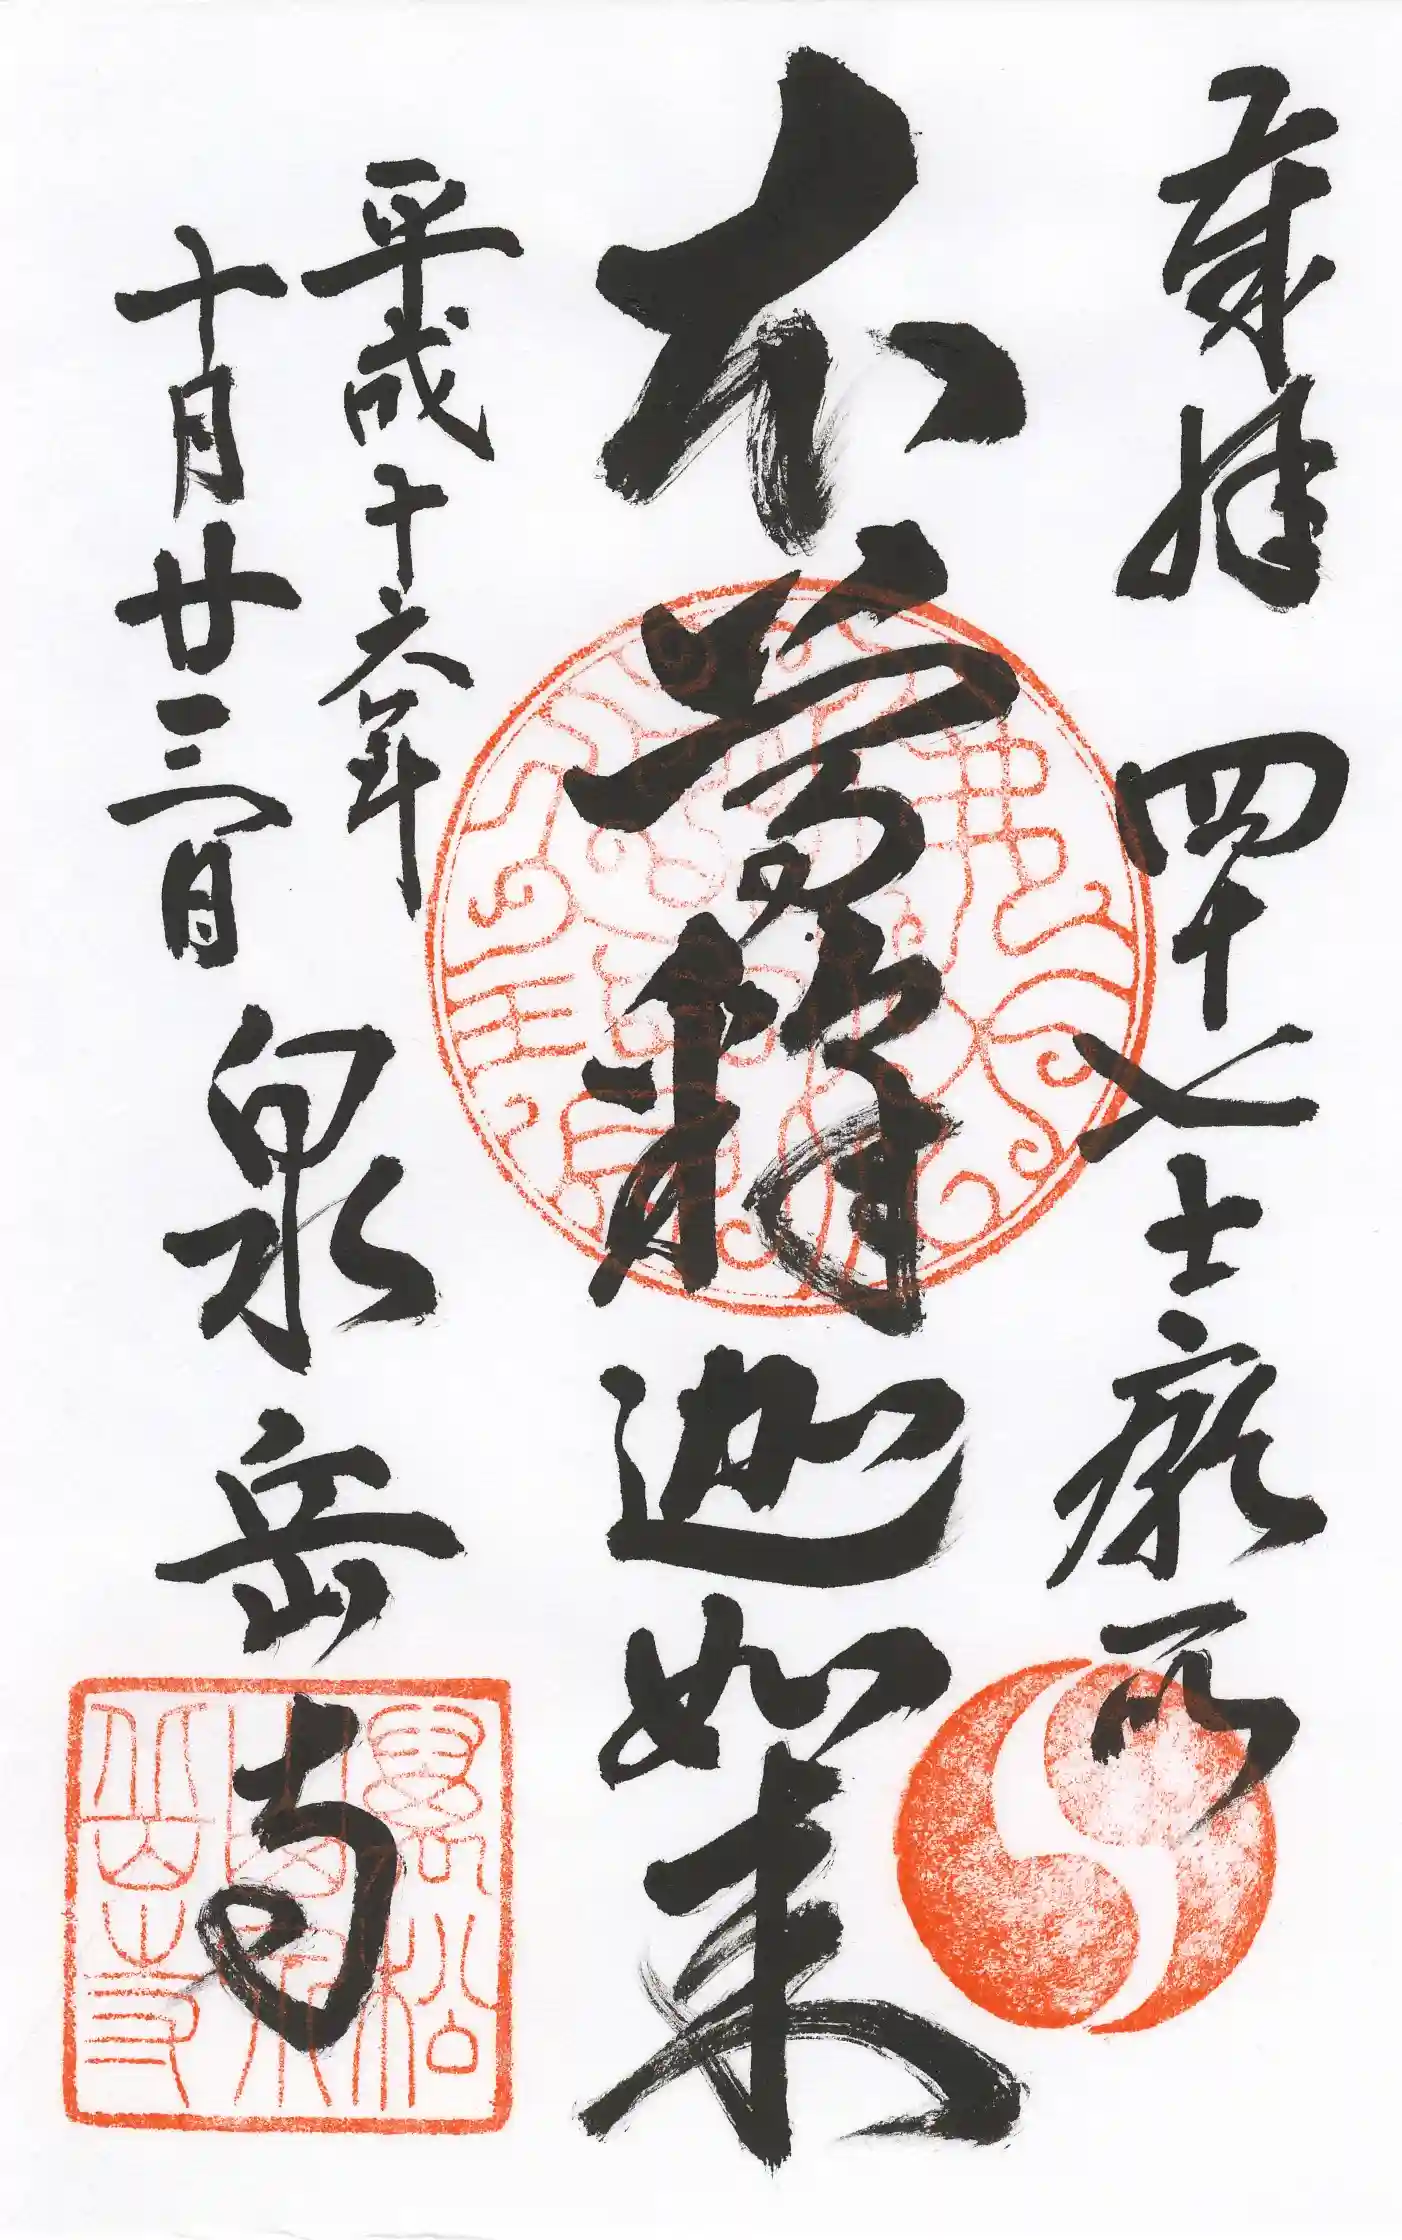 奉拝 四十七士廟所
本尊釋迦如来
平成十六年
十月廿三日
泉岳寺
萬松
山泉
岳寺